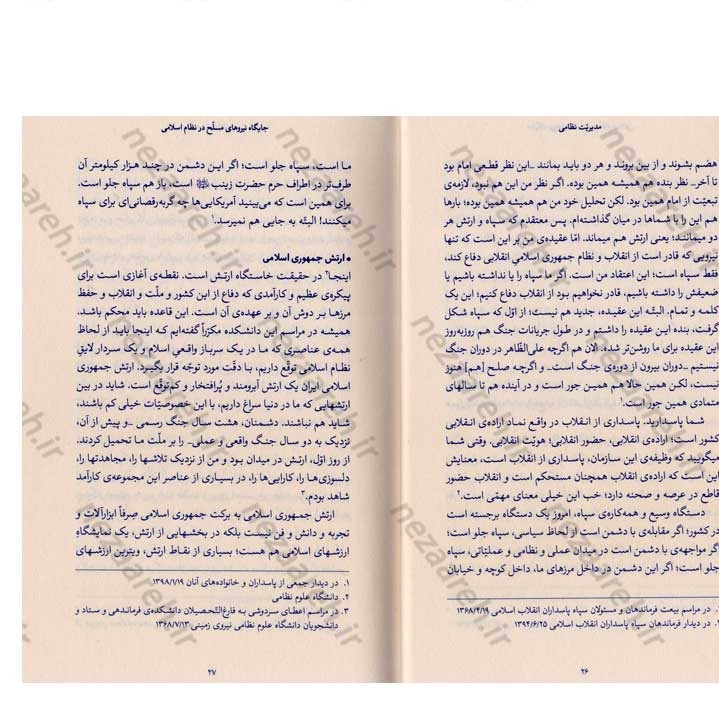 مدیریّت نظامی
هضم بشوند و از بین بروند و هر دو باید بمانند _این نظر قطعی امام بود
تا آخر_ نظر بنده هم همیشه همین بوده. اگر نظر من این هم نبود، لازمه‌ی
تبعیّت از امام همین بود. لکن تحلیل خود من هم همیشه همین بوده؛ بارها
هم این را با شماها در میان گذاشته‌ام. پس معتقدم که سپاه و ارتش هر
دو میمانند؛ یعنی ارتش هم میماند. امّا عقیده‌ی من بر این است که تنها
نیرویی که قادر است از انقلاب و نظام جمهوری اسلامیِ انقلابی دفاع کند،
فقط سپاه است؛ این اعتقاد من است. اگر ما سپاه را یا نداشته باشیم یا
ضعیفش را داشته باشیم، قادر نخواهیم بود از انقلاب دفاع کنیم؛ این یک
کلمه و تمام. البتّه این عقیده، جدید هم نیست؛ از اوّل که سپاه شکل
گرفت، بنده این عقیده را داشتم و در طول جریانات جنگ هم روزبه‌روز
این عقیده برای ما روشن‌تر شده. الان هم اگرچه علی‌الظّاهر در دوران جنگ
نیستیم _دوران بیرون از دوره‌ی جنگ است_ و اگرچه صلح [هم] هنوز
نیست، لکن همین حالا هم همین جور است و در آینده هم تا سالهای
متمادی همین جور است.۱
شما پاسدارید. پاسداری از انقلاب در واقع نماد اراده‌ی انقلابی
کشور است؛ اراده‌ی انقلابی، حضور انقلابی؛ هویّت انقلابی. وقتی شما
میگویید که وظیفه‌ی این سازمان، پاسداری از انقلاب است، معنایش
این است که اراده‌ی انقلاب همچنان مستحکم است و انقلاب حضور
قاطع در عرصه و صحنه دارد؛ خب این خیلی معنای مهمّی است.۲
دستگاه وسیع و همه‌کاره‌ی سپاه، امروز یک دستگاه برجسته است
در کشور؛ اگر مقابله‌ی با دشمن است از لحاظ سیاسی، سپاه جلو است؛
گر مواجهه‌ی با دشمن است در میدان عملی و نظامی و عملیّاتی، سپاه
جلو است؛ اگر این دشمن در داخل مرزهای ما، داخل کوچه و خیابان
۱. در مراسم بیعت فرماندهان و مسئولان سپاه پاسداران انقلاب اسلامی ۱۳۶۸/۴/۱۹
۲. در دیدار فرماندهان سپاه پاسداران انقلاب اسلامی ۱۳۹۴/۶/۲۵
۲۶
جایگاه نیروهای مسلّح در نظام اسلامی
ما است، سپاه جلو است؛ اگر این دشمن در چند هزار کیلومتر آن
طرف‌تر در اطراف حرم حضرت زینب است، باز هم سپاه جلو است.
برای همین است که می‌بینید آمریکایی‌ها چه گربه‌رقصانی‌ای برای سپاه
میکنند! البتّه به جایی هم نمیرسد.۱
• ارتش جمهوری اسلامی
اینجا۲ در حقیقت خاستگاه ارتش است. نقطه‌ی آغازی است برای
پیکره‌ی عظیم و کارآمدی که دفاع از این کشور و ملّت و انقلاب و حفظ
مرزها بر دوش آن و بر عهده‌ی آن است. این قاعده باید محکم باشد.
همیشه در مراسم این دانشکده مکرّراً گفته‌ایم که اینجا باید از لحاظ
همه‌ی عناصری که ما در یک سرباز واقعیِ اسلام و یک سردار لایقِ
نظام اسلامی توقّع داریم، با دقّت مورد توجّه قرار بگیرد. ارتش جمهوری
اسلامی ایران یک ارتش آبرومند و پُرافتخار و کم‌توقّع است. شاید در بین
ارتشهایی که ما در دنیا سراغ داریم، با این خصوصیّات خیلی کم باشند،
شاید هم نباشند. دشمنان، هشت سال جنگ رسمی _و پیش از آن،
نزدیک به دو سال جنگ واقعی و عملی_ را بر ملّت ما تحمیل کردند.
از روز اوّل، ارتش در میدان بود و من از نزدیک تلاشها را، مجاهدتها را،
دلسوزی‌ها را، کارایی‌ها را، در بسیاری از عناصر این مجموعه‌ی کارآمد
شاهد بودم.۳
ارتش جمهوری اسلامی به برکت جمهوری اسلامی صِرفاً ابزارآلات و
تجربه و دانش و فن نیست بلکه در بخشهایی از ارتش، یک نمایشگاهِ
ارزشهای اسلامی هم هست؛ بسیاری از نقاط ارتش، ویترین ارزشهای
۱. در دیدار جمعی از پاسداران و خانواده‌های آنان ۱۳۹۸/۱/۱۹
۲. دانشگاه علوم نظامی
۳. در مراسم اعطای سردوشی به فارغ‌التّحصیلان دانشکده‌ی فرماندهی و ستاد و
دانشجویان دانشگاه علوم نظامی نیروی زمینی ۱۳۶۸/۷/۱۳
۲۷
nezaareh.ir